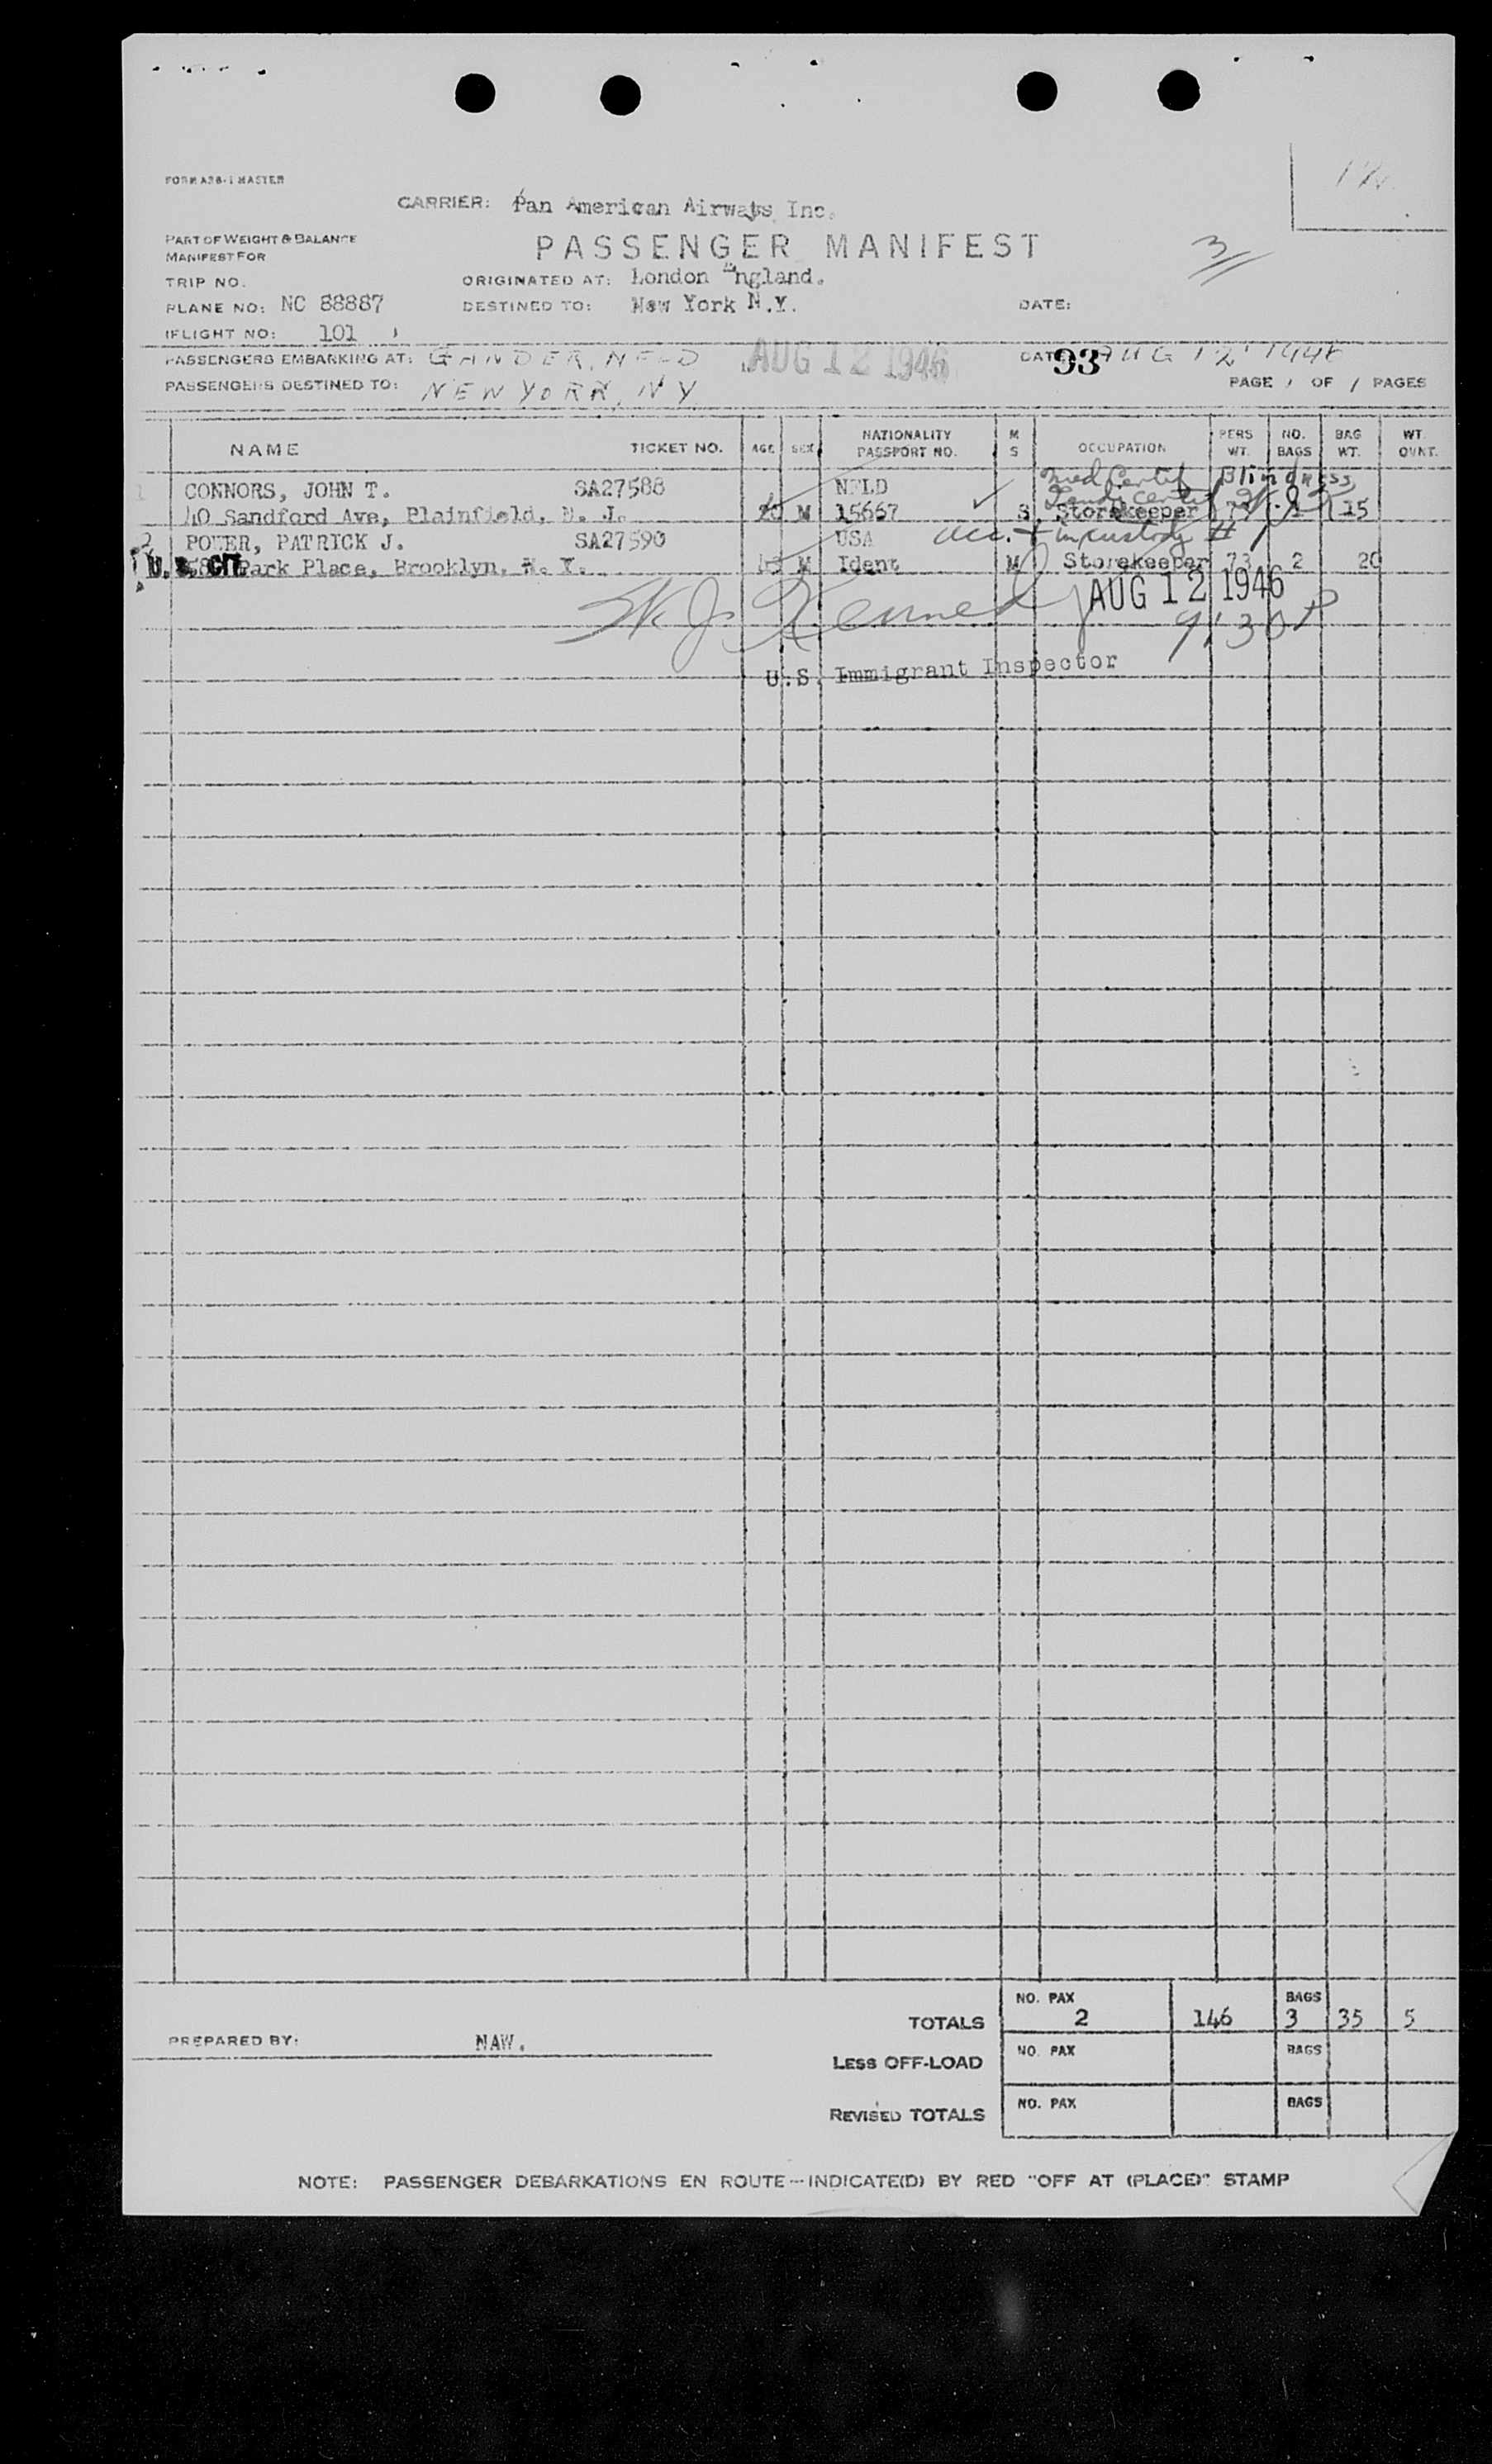 FORM A28-1 MASTER
CARRIER: Pan American Airways Inc.
PART OF WEIGHT & BALANCE
MANIFEST FOR
PASSENGER MANIFEST
3
TRIP NO.
ORIGINATED AT: London England.
PLANE NO: NC 88887
DESTINED TO: New York N.Y.
DATE:
FLIGHT NO: 101
PASSENGERS EMBARKING AT: GANDER, NFLD
AUG 12 1946
DATE 93 AUG 12 1946
PASSENGERS DESTINED TO: NEW YORK, NY
PAGE 1 OF 1 PAGES
NAME TICKET NO. AGE SEX NATIONALITY PASSPORT NO. M S OCCUPATION PERS WT. NO. BAGS BAG WT. WT. OVNT.
Med Certif Blindness
1 CONNORS, JOHN T. SA27588 NFLD
40 Sandford Ave, Plainfield, N. J. 20 M 15667 S Storekeeper 73 1 15
2 POWER, PATRICK J. SA27590 USA acc. + in custody #1
U. S. CIT. Park Place, Brooklyn, N. Y. M Ident M Storekeeper 73 2 20
AUG 12 1946
9:30P
U.S. Immigrant Inspector
TOTALS NO. PAX 2 146 BAGS 3 35 5
PREPARED BY: NAW.
LESS OFF-LOAD NO. PAX BAGS
REVISED TOTALS NO. PAX BAGS
NOTE: PASSENGER DEBARKATIONS EN ROUTE--INDICATE(D) BY RED "OFF AT (PLACE)" STAMP